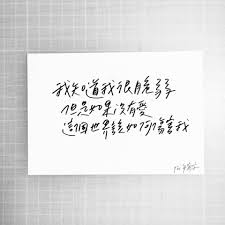 我知道我很脆弱
但是如果沒有愛
這個世界該如何傷害我